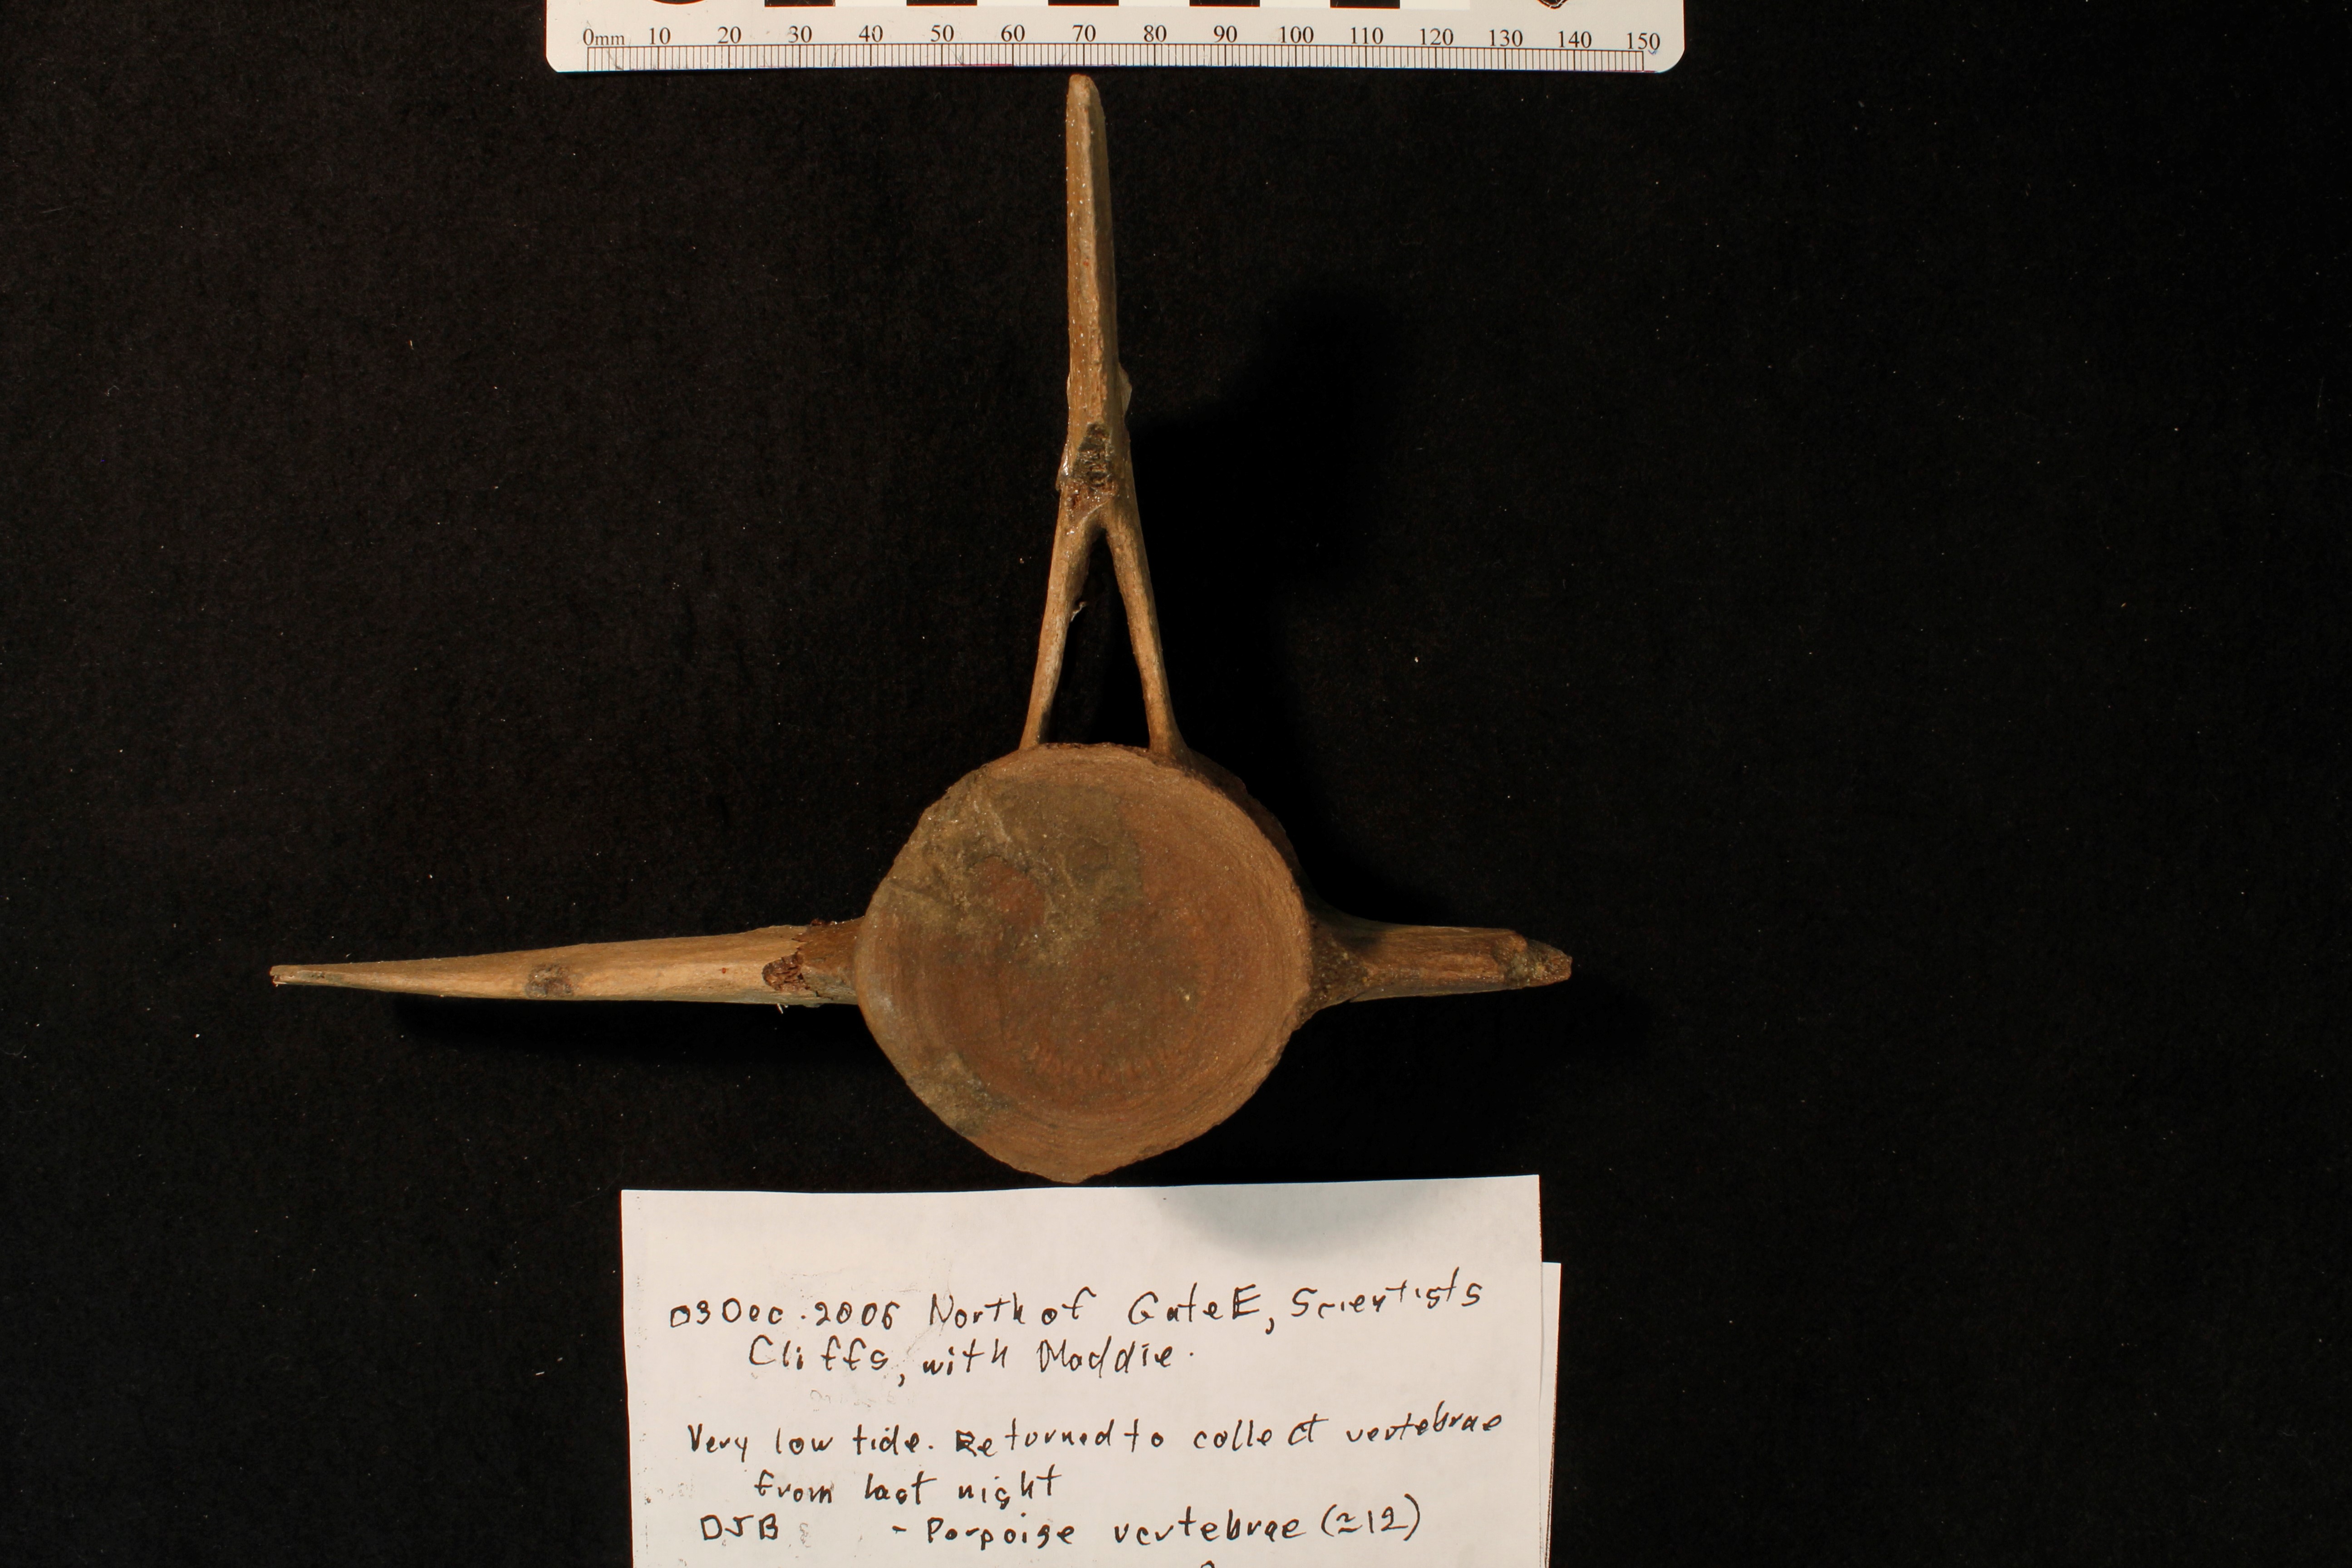 0mm 10 20 30 40 50 60 70 80 90 100 110 120 130 140 150
03Dec.2006 North of Gate E, Scientists
Cliffs, with Maddie.
Very low tide. Returned to collect vertebrae
from last night
DJB - Porpoise vertebrae (≈12)